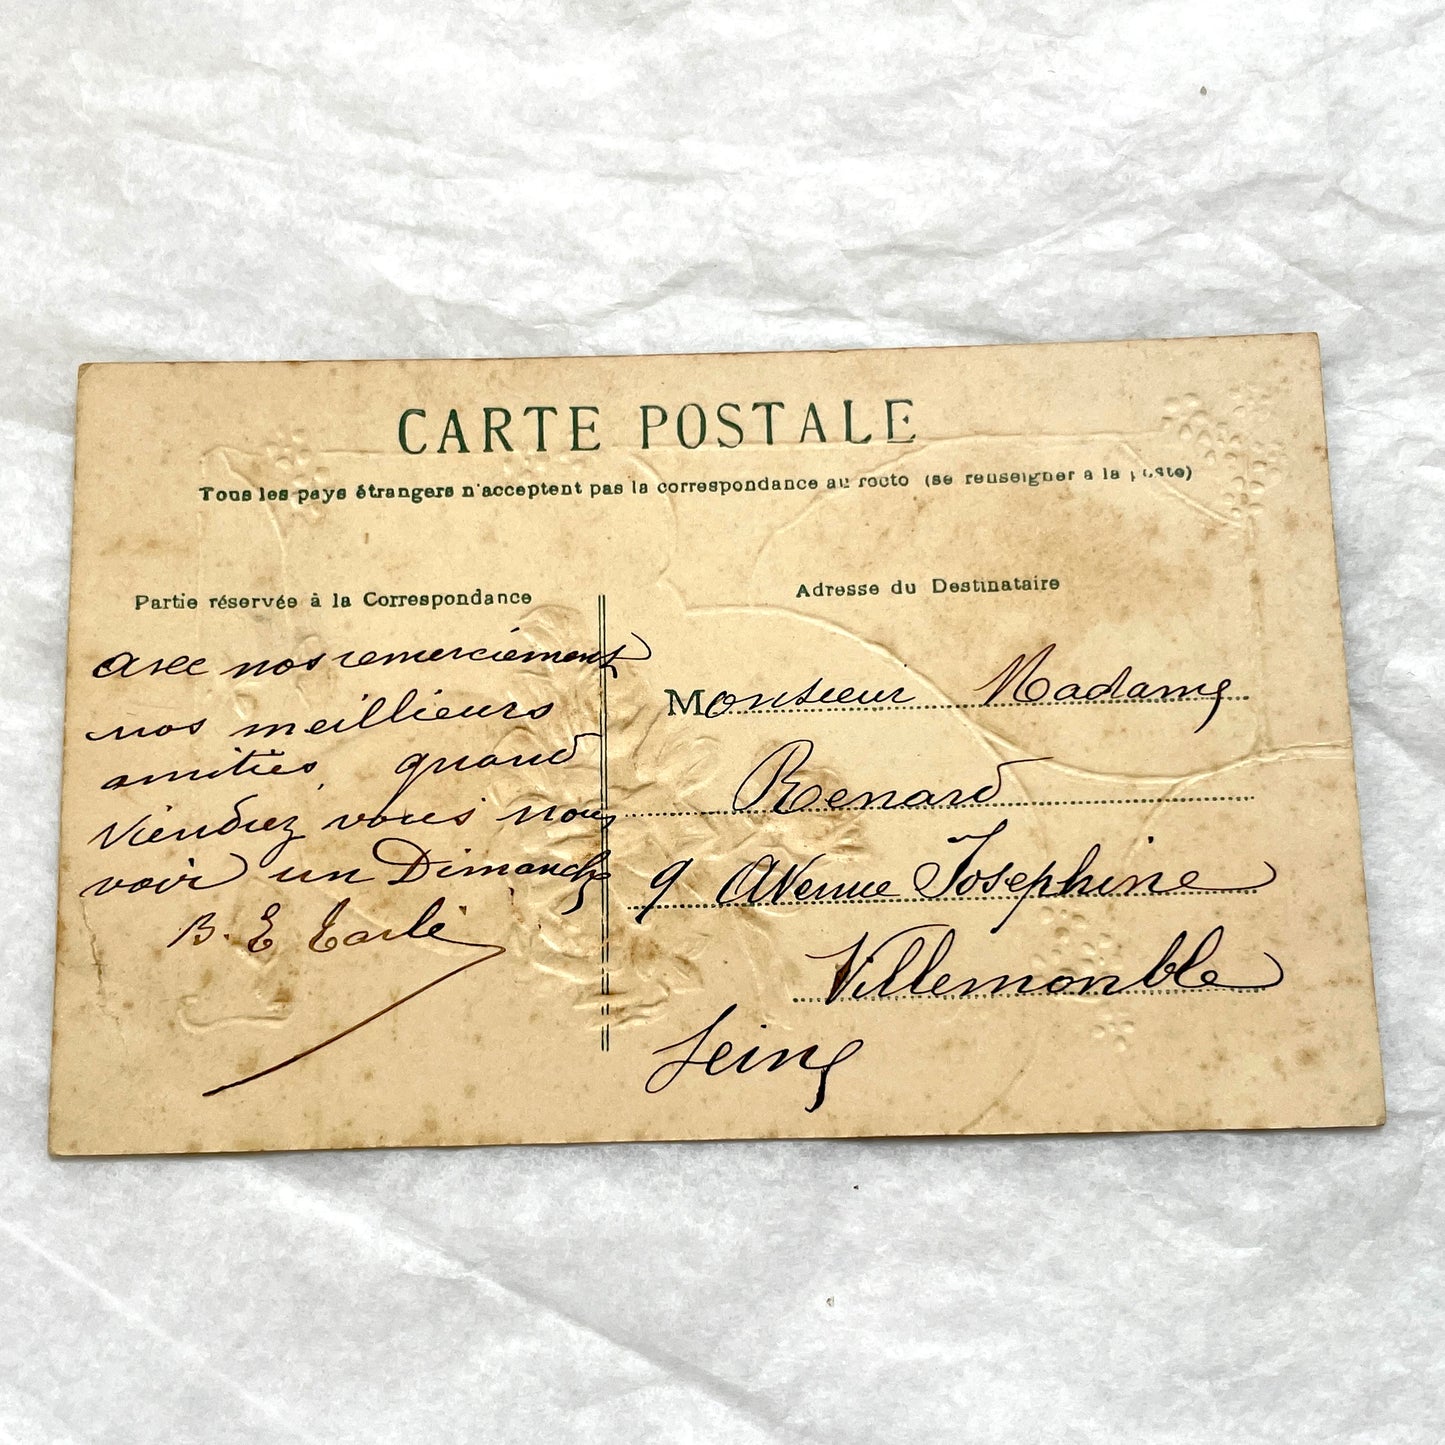 CARTE POSTALE
Tous les pays étrangers n'acceptent pas la correspondance au recto (se renseigner a la poste)
Partie réservée à la Correspondance
avec nos remerciements
nos meillieurs
amitiés quand
viendrez vous nous
voir un Dimanche
B. E
Adresse du Destinataire
Monsieur Madame
Renard
9 Avenue Josephine
Villemonble
Seine